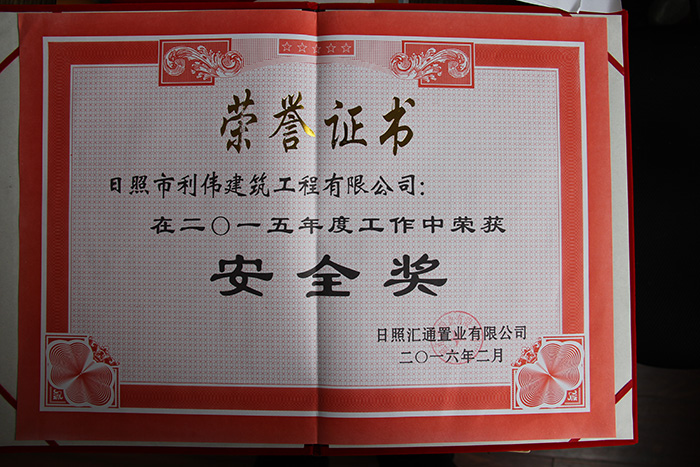 荣誉证书
日照市利伟建筑工程有限公司：
在二〇一五年度工作中荣获
安全奖
日照汇通置业有限公司
二〇一六年二月